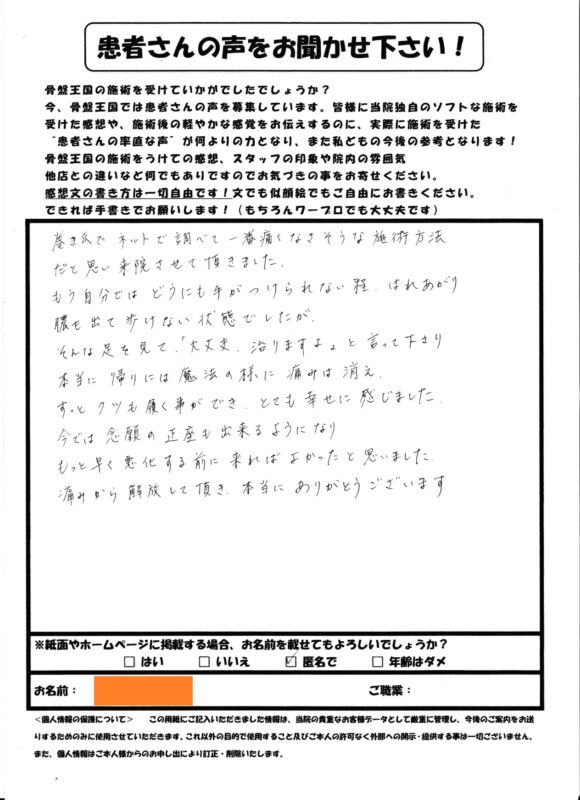 患者さんの声をお聞かせ下さい！
骨盤王国の施術を受けていかがでしたでしょうか？
今、骨盤王国では患者さんの声を募集しています。皆様に当院独自のソフトな施術を
受けた感想や、施術後の軽やかな感覚をお伝えするのに、実際に施術を受けた
"患者さんの率直な声"が何よりの力となり、また私どもの今後の参考となります！
骨盤王国の施術をうけての感想、スタッフの印象や院内の雰囲気
他店との違いなど何でもありですのでお気づきの事をお寄せください。
感想文の書き方は一切自由です！文でも似顔絵でもご自由にお書きください。
できれば手書きでお願いします！（もちろんワープロでも大丈夫です）
巻き爪で ネットで調べて 一番痛くなさそうな 施術方法
だと思い 来院させて頂きました。
もう自分では どうにも手がつけられない 程、はれあがり
膿も出て 歩けない 状態でしたが、
そんな足を見て、「大丈夫、治りますよ」と 言って下さり
本当に 帰りには 魔法の様に 痛みは消え、
すっと クツも履く事ができ、とても 幸せに 感じました。
今では 念願の 正座も出来るようになり
もっと早く 悪化する前に 来れば よかったと思いました。
痛みから 解放して頂き、本当に ありがとうございます
※紙面やホームページに掲載する場合、お名前を載せてもよろしいでしょうか？
□ はい □ いいえ ☑ 匿名で □ 年齢はダメ
お名前： ご職業：
＜個人情報の保護について＞ この用紙にご記入いただきました情報は、当院の貴重なお客様データとして厳重に管理し、今後のご案内をお送
りするためのみに使用させていただきます。これ以外の目的で使用すること及びご本人の許可なく外部への開示・提供する事は一切ございません。
また、個人情報はご本人様からのお申し出により訂正・削除いたします。